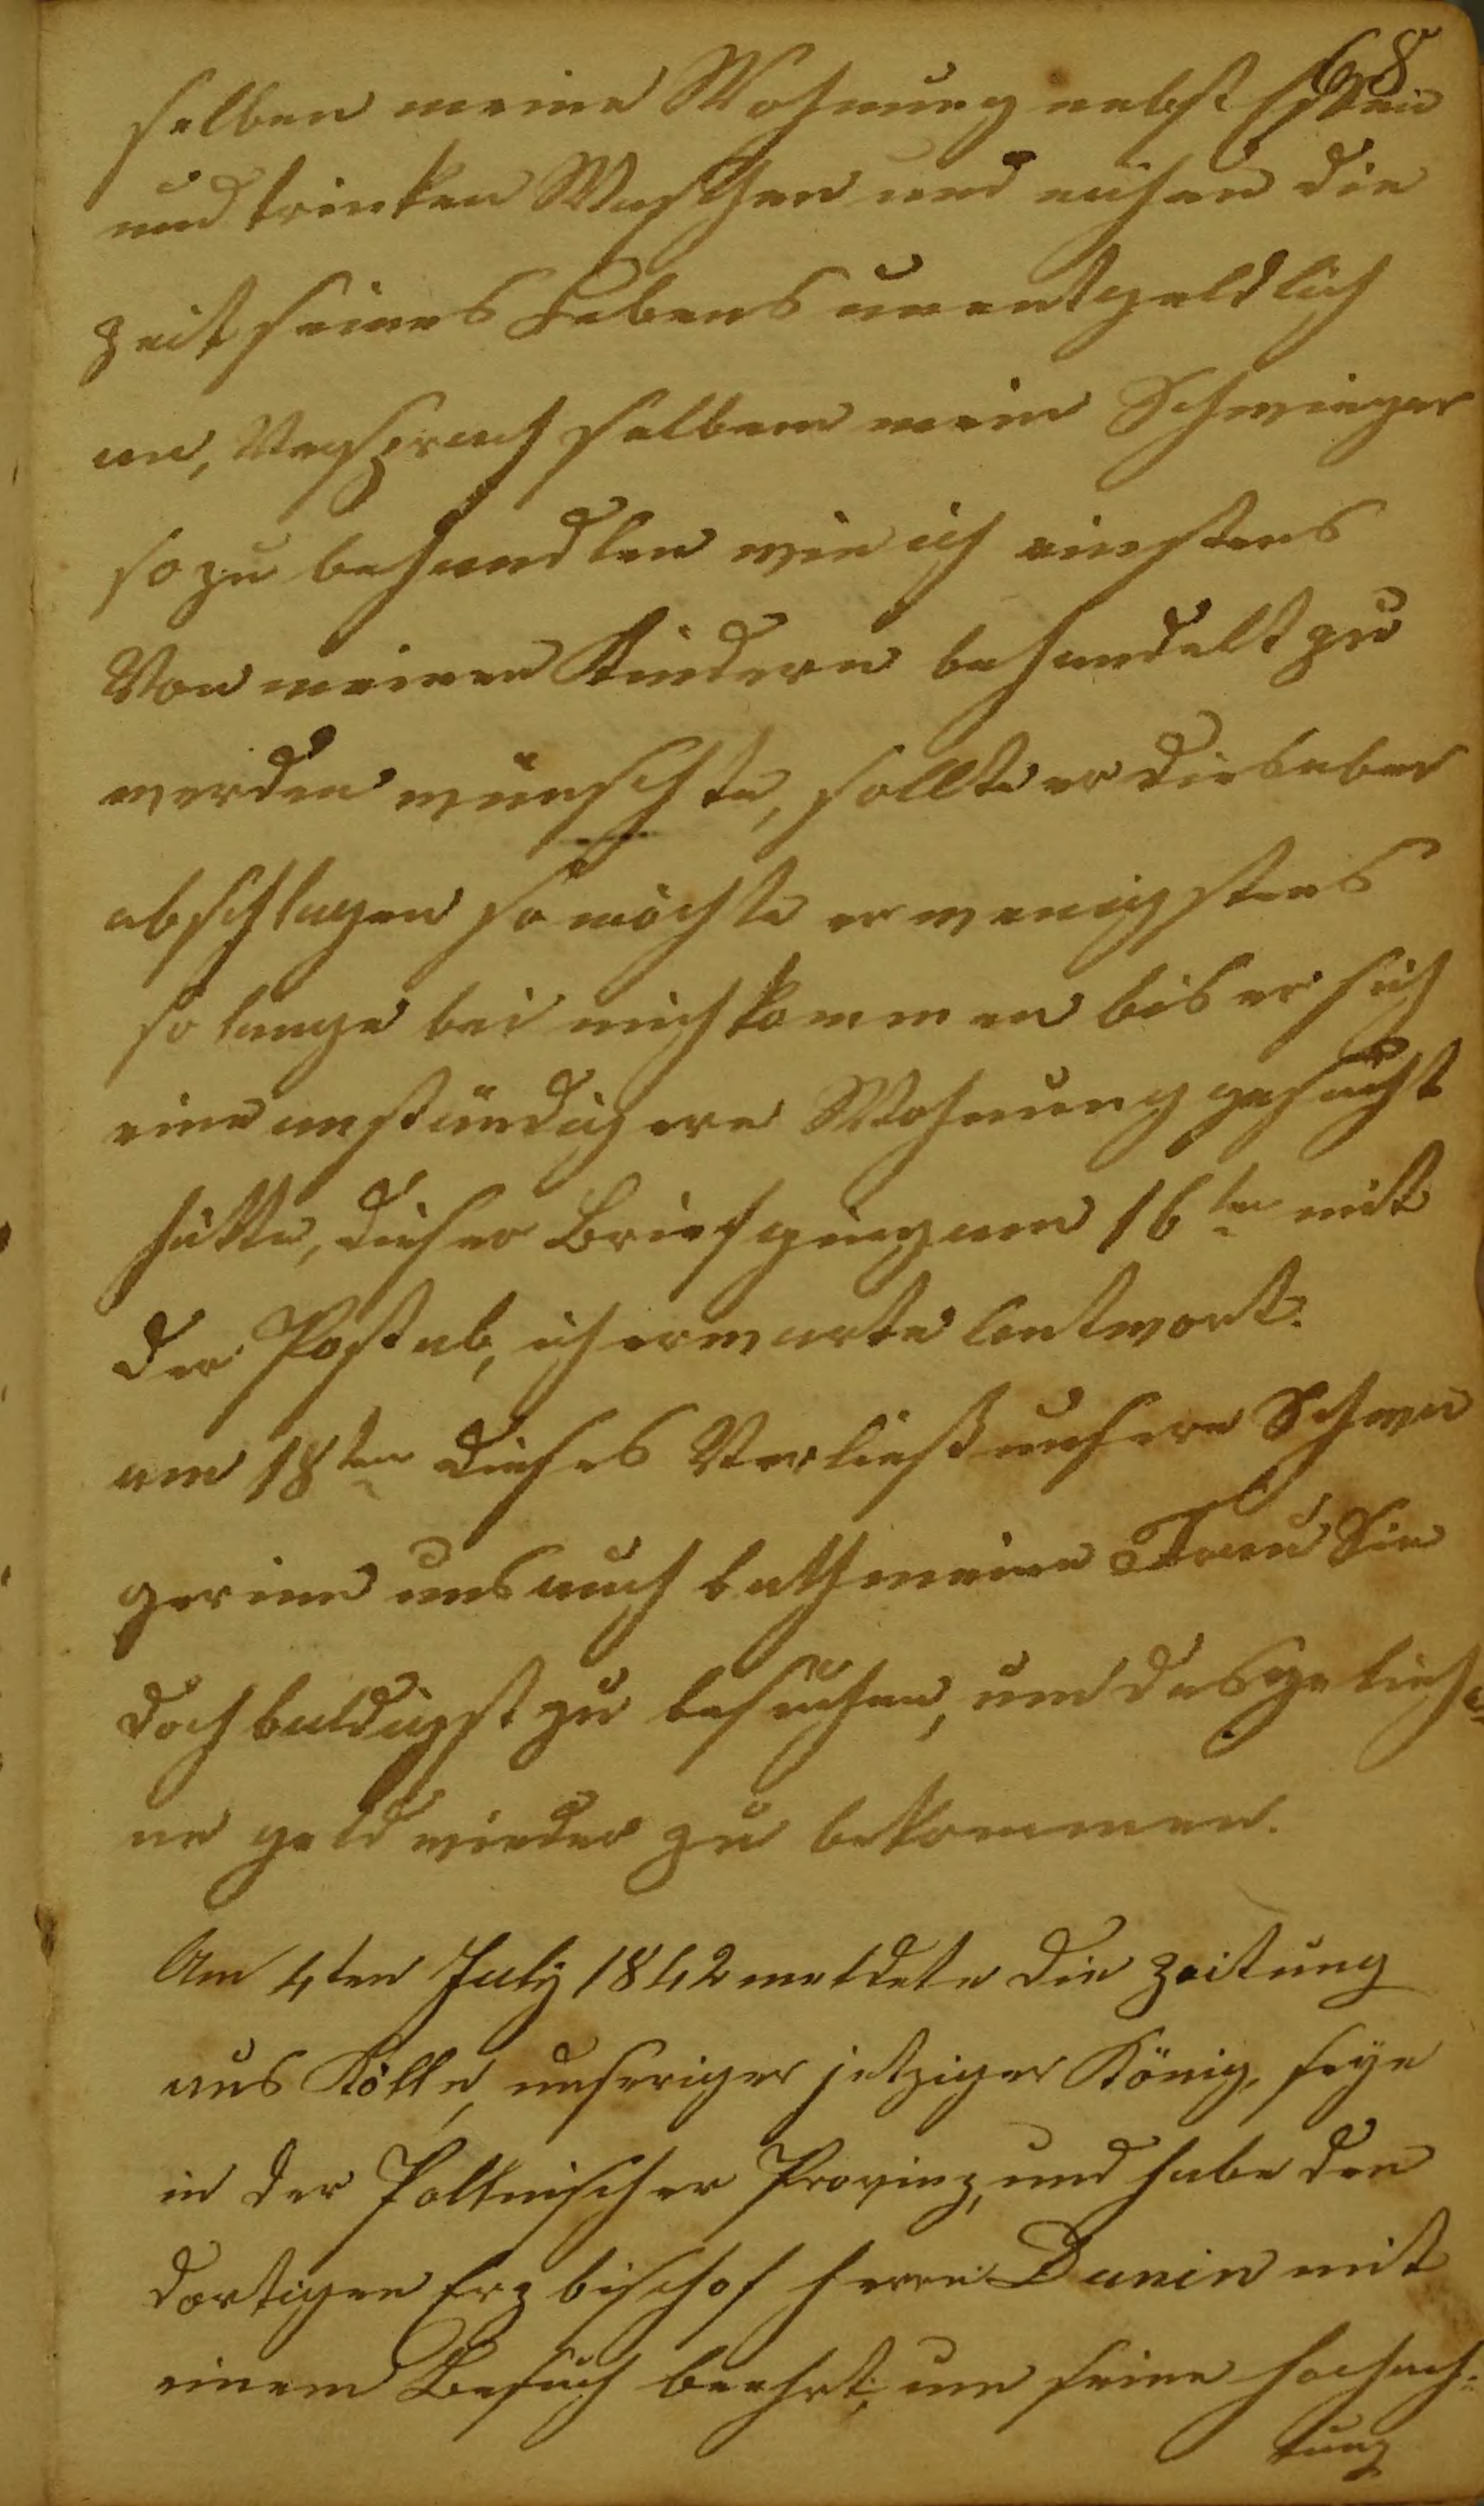 68
selben meine Wohnung nebst Essen
und trinken Waschen und nähen die
zeit seines Lebens unentgeldlich
an, Versprach selben mein Schwieger
so zu behandlen wie ich einstens
Von meinen Kindern behandelt zu
werden wünschte, sollte er die
abschlagen so möchte er wenigstens
so lange bei mich kommen bis er sich
eine anständigere Wohnung gesucht
hätte, dieser Brief ging am 16ten mit
der Post ab, ich erwarte antwort.
am 18ten dieses Verließ unsere Schwä
gerinn uns auch bath meine Frau Sie
doch baldigst zu besuchen, um das gelieh
ne geld wieder zu bekommen.
Am 4ten July 1842 meldete die Zeitung
aus Kölln, unseriger jetziger König, seye
in der Pollnischer Provinz, und habe den
dortigen Erzbischof herrn Dunin mit
einem Besuch beehrt, um seine hochach=
tung